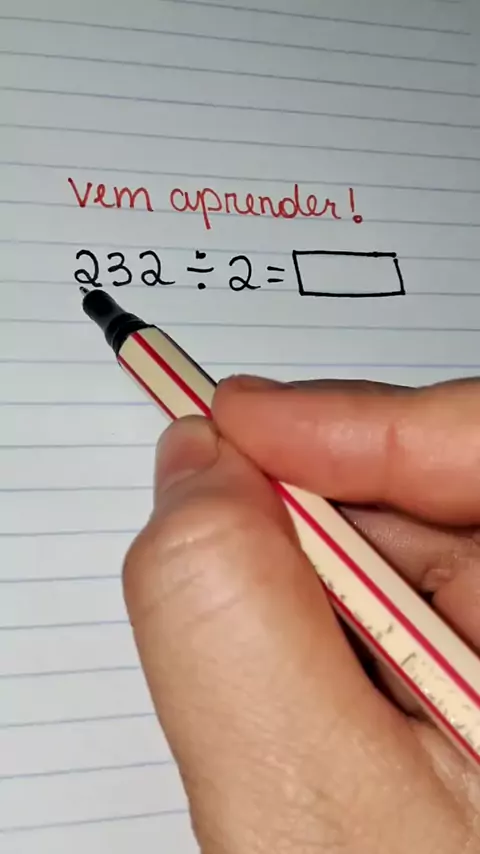 Vem aprender!
232 ÷ 2 =